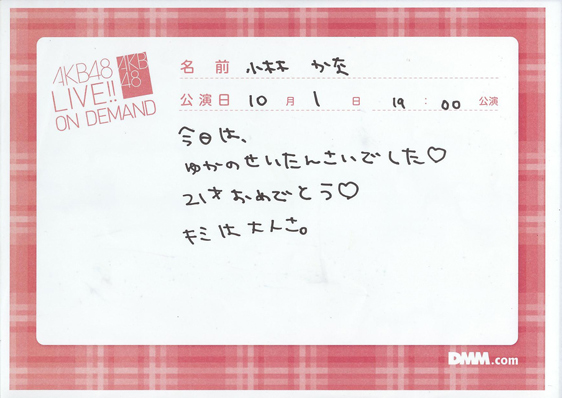 AKB48
LIVE!!
ON DEMAND
AKB
48
名前 小林 かな
公演日 10月 1日 19:00 公演
今日は、
ゆかのせいたんさいでした♡
21才おめでとう♡
キミは大んさ。
DMM.com